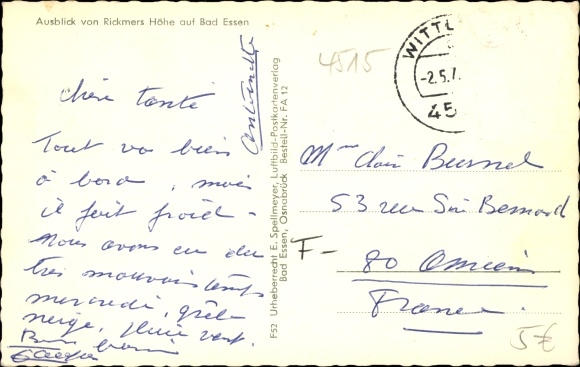 Ausblick von Rickmers Höhe auf Bad Essen
4515
WITTL
-2.5.7
45
Chère tante
Tout va bien
à bord, mais
il fait froid -
Nous avons eu du
très mauvais temps
mercredi, grêle
neige, pluie vent.
Bons baisers
F52 Urheberrecht E. Spellmeyer, Luftbild-Postkartenverlag
Bad Essen, Osnabrück Bestell-Nr. FA 12
Mme
53 rue
F - 80 Amiens
France
5€